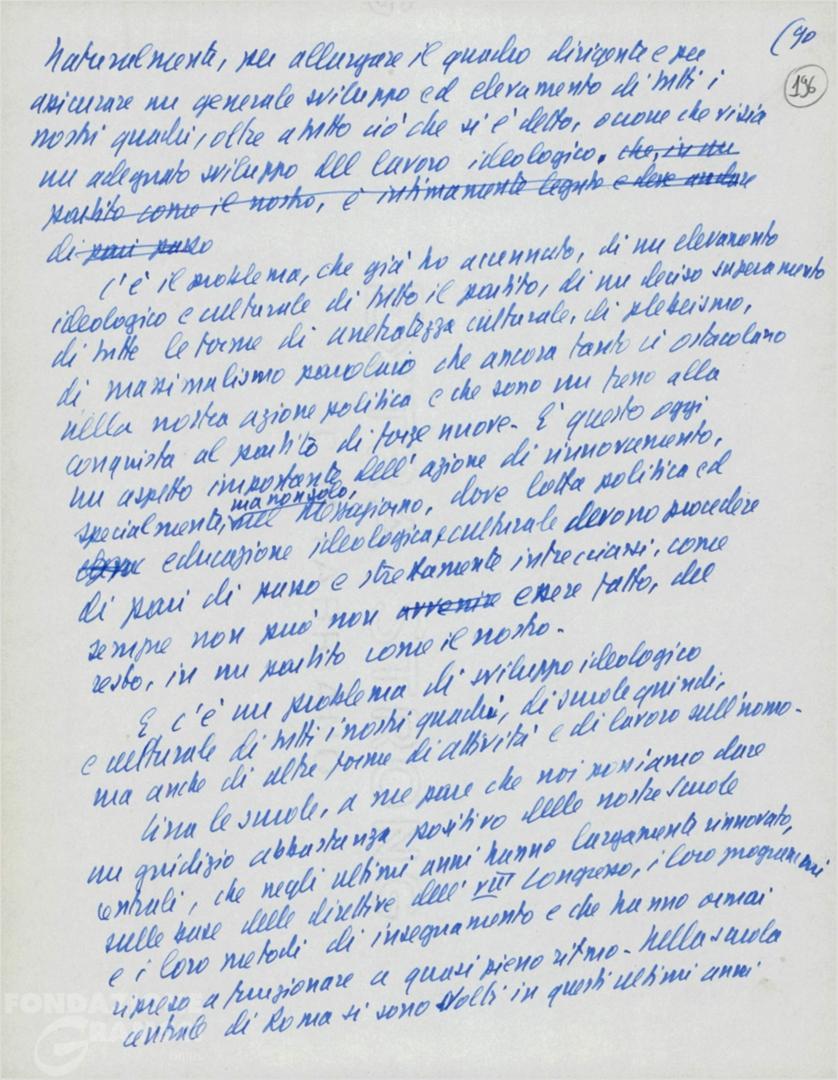 (90
196
Naturalmente, per allargare il quadro dirigente e per
assicurare un generale sviluppo ed elevamento di tutti i
nostri quadri, oltre a tutto ciò che si è detto, occorre che vi sia
un adeguato sviluppo del lavoro ideologico. che, in un
partito come il nostro, è intimamente legato e deve andare
di pari passo
C'è il problema, che già ho accennato, di un elevamento
ideologico e culturale di tutto il partito, di un deciso superamento
di tutte le forme di arretratezza culturale, di plebeismo,
di massimalismo parolaio che ancora tanto ci ostacolano
nella nostra azione politica e che sono un freno alla
conquista al partito di forze nuove. E' questo oggi
un aspetto importante dell'azione di rinnovamento,
specialmente, ma non solo, nel Mezzogiorno, dove lotta politica ed
educazione ideologica e culturale devono procedere
di pari di passo e strettamente intrecciarsi, come
sempre non può non avvenire essere fatto, del
resto, in un partito come il nostro.
E c'è un problema di sviluppo ideologico
e culturale di tutti i nostri quadri, di scuole quindi,
ma anche di altre forme di attività e di lavoro sull'uomo.
Circa le scuole, a me pare che noi possiamo dare
un giudizio abbastanza positivo delle nostre scuole
centrali, che negli ultimi anni hanno largamente rinnovato,
sulle base delle direttive dell'VIII Congresso, i loro programmi
e i loro metodi di insegnamento e che hanno ormai
ripreso a funzionare a quasi pieno ritmo. Nella scuola
centrale di Roma si sono svolti in questi ultimi anni
FONDAZIONE
GRAMSCI